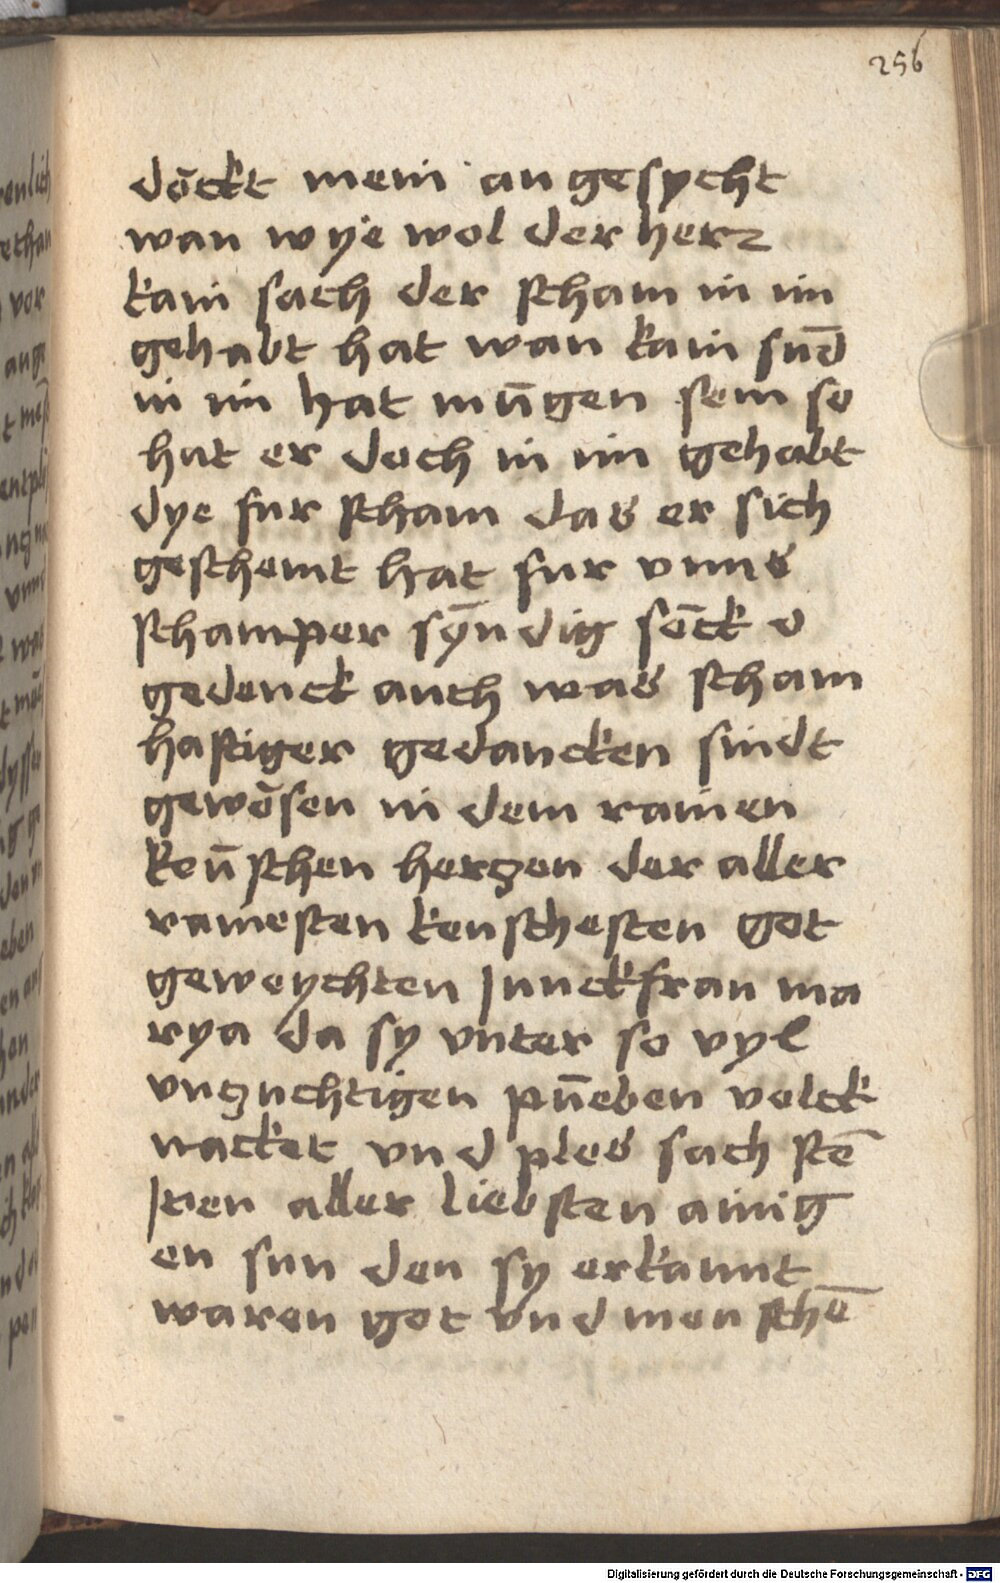 256
döckt mein angesycht
wan wye wol der herz
kain sach der scham in im
gehabt hat wan kain sūd
in im hat mügen sein so
hat er doch in im gehabt
dye fur scham das er sich
geschemt hat fur vnns
schamper syndig
gedenck auch was scham
haftiger gedancken sindt
gewösen in dem rainen
keüschen herzen der aller
rainesten keuschesten got
geweychten Junckfrau ma
rya da sy vnter so vyl
vnzuchtigen püeben volck
nacket vnd plos sach stē
Jren aller liebsten ainig
en sun den sy erkannt
waren got vnd menschē
Digitalisierung gefördert durch die Deutsche Forschungsgemeinschaft - DFG